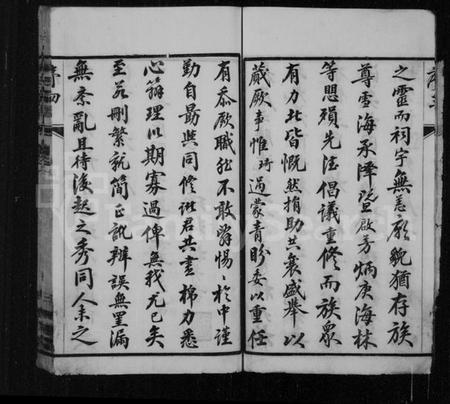 之靈而祠宇無恙廟貌猶存族
尊雪海承澤玩亞啟芳炳庚海林
等思殞先法倡議重修而族眾
有力此皆慨然捐助共襄盛舉以
蕆厥事惟琦過蒙青盼委以重任
有忝厥職然不敢怠惕於中謹
勤自勗與同修諸君共盡棉力悉
心籍理以期寡過俾無我尤已矣
至於刪繁就簡正訛辯誤無罣漏
無紊亂且待後起之秀同人未之
序四
FamilySearch